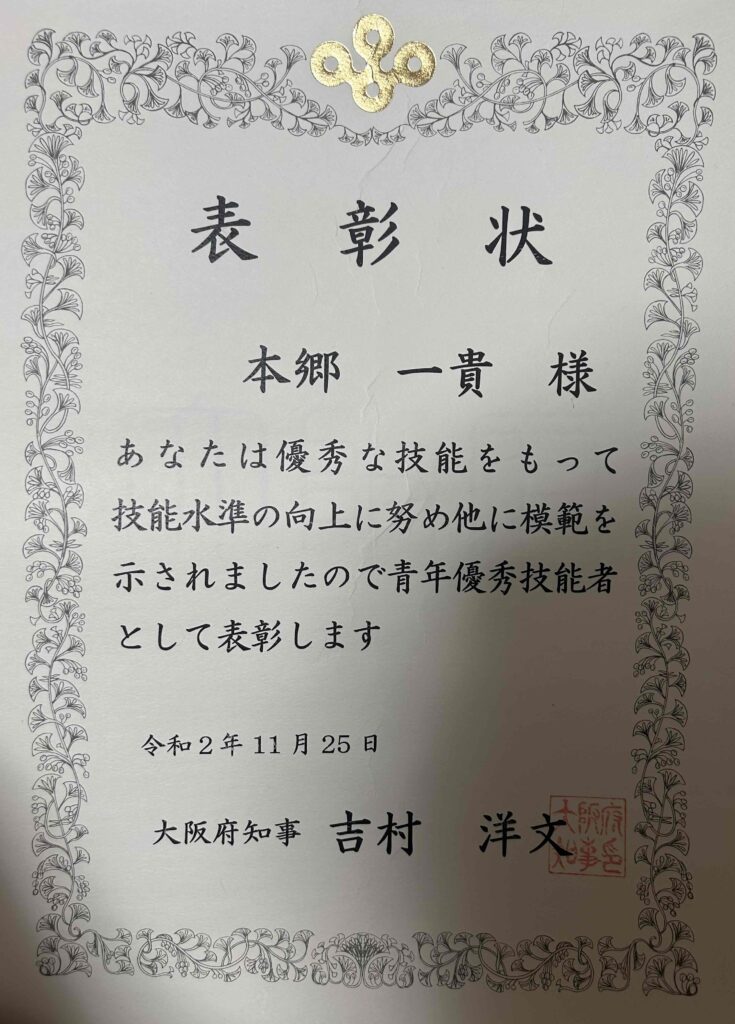 表彰状
本郷 一貴 様
あなたは優秀な技能をもって
技能水準の向上に努め他に模範を
示されましたので青年優秀技能者
として表彰します
令和2年11月25日
大阪府知事 吉村 洋文
大阪府
知事印